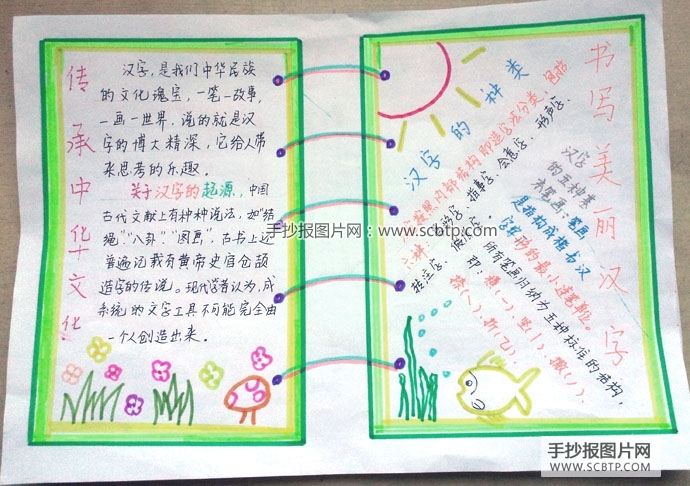 传承中华文化
汉字，是我们中华民族
的文化瑰宝，一笔一故事，
一画一世界，说的就是汉
字的博大精深，它给人带
来思考的乐趣。
关于汉字的起源，中国
古代文献上有种种说法，如“结
绳”、“八卦”、“图画”，古书上还
普遍记载有黄帝史官仓颉
造字的传说。现代学者认为，成
系统的文字工具不可能完全由
一个人创造出来。
书写美丽汉字
汉字的种类
按照内部结构即造字法分类，包括
六种：
指事字、会意字、形声字、
转注字、假借字。
汉字
的五种基
本笔画：笔画
是指构成楷书汉
字字形的最小连笔单位。
所有笔画归纳为五种标准的结构，
即：横(一)、竖(丨)、撇(丿)、
捺(㇏)、折(乙)。
手抄报图片网：www.scbtp.com
手抄报图片网
WWW.SCBTP.COM